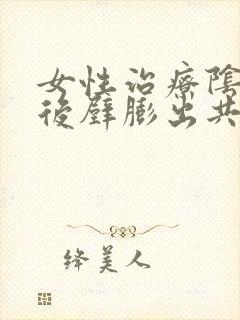 女性治療陰
後壁膨出共
绛美人